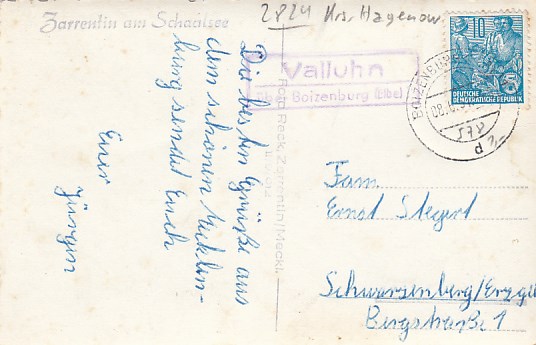 2824 Krs. Hagenow
Zarrentin am Schaalsee
Die besten Grüße aus
dem schönen Mecklen-
burg sendet Euch
Euer
Jürgen
Valluhn
über Boizenburg (Elbe)
Reck, Zarrentin/Meckl.
10
DEUTSCHE
DEMOKRATISCHE REPUBLIK
BOIZENBURG
d
Fam.
Ernst Stegert
Schwarzenberg/Erzgeb
Bergstraße 1